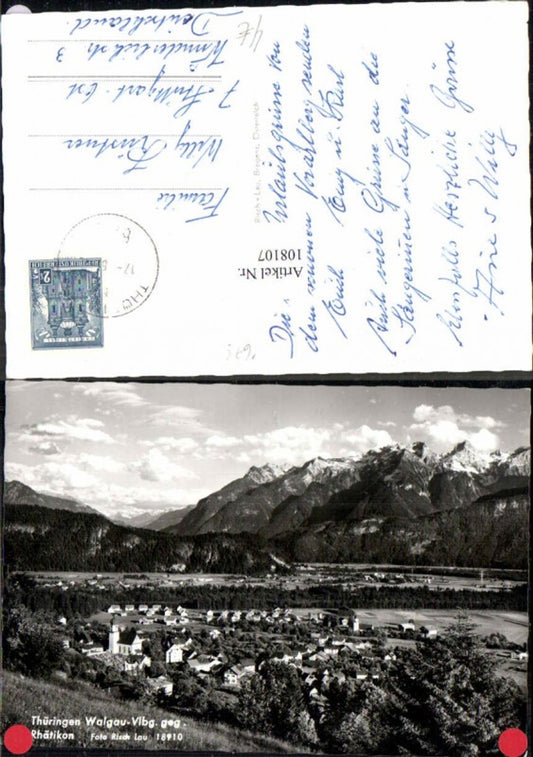 Die
Urlaubsgrüsse von
dem schönen Vorarlberg senden
Euch Emy u. Karl
Auch viele Grüsse an die
Sängerinnen u. Sänger.
Ebenfalls Herzliche Grüsse
Willy
Artikel Nr.
108107
Risch-Lau, Bregenz, Österreich
Familie
Willy
7 Stuttgart-Ost
Wunderlichstr. 3
Deutschland.
4€
REPUBLIK ÖSTERREICH
Thüringen Walgau-Vlbg. geg.
Rhätikon Foto Risch Lau 18910